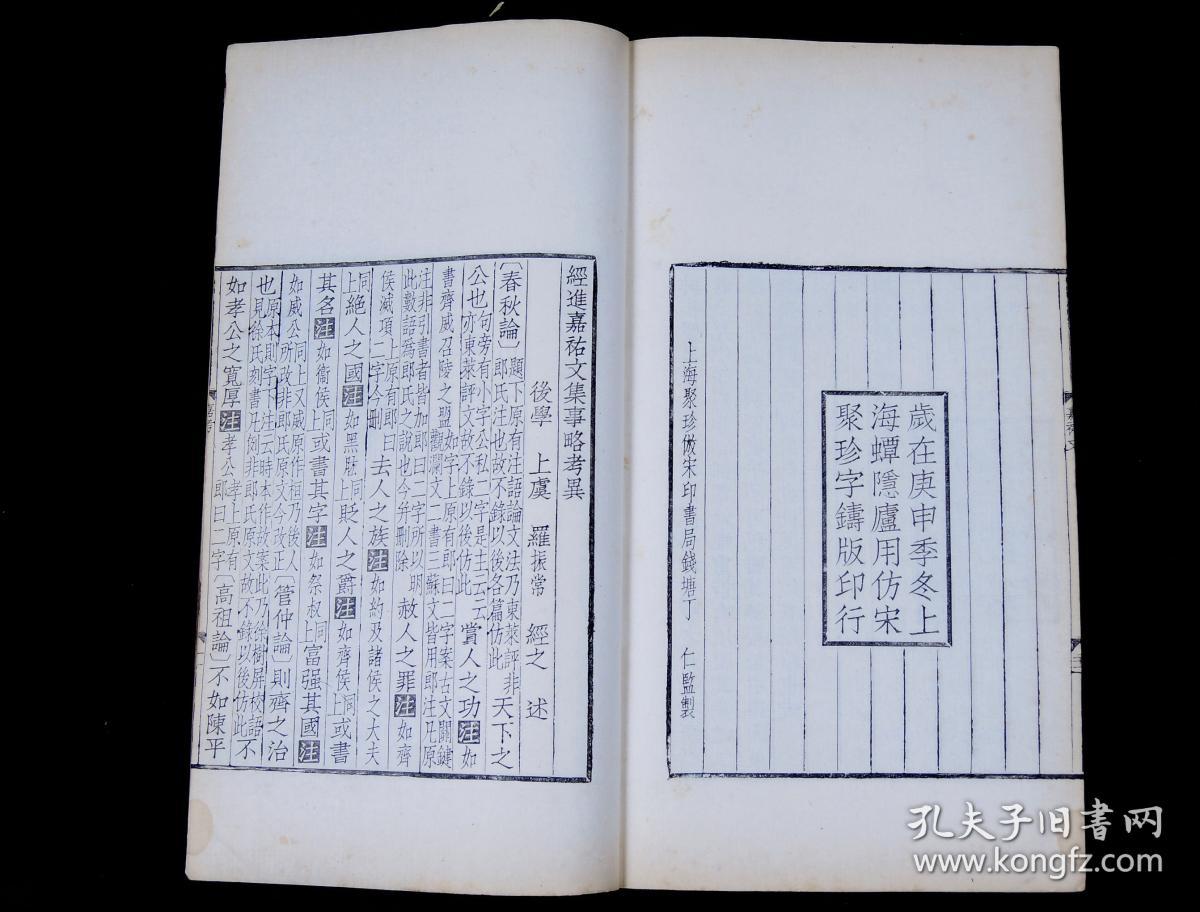 歲在庚申季冬上
海蟫隱廬用仿宋
聚珍字鑄版印行
上海聚珍倣宋印書局錢塘丁 仁監製
經進嘉祐文集事略考異
後學 上虞 羅振常 經之 述
〔春秋論〕題下原有注語論文法乃東萊評非郎氏注也故不錄以後各篇仿此天下之
公也句旁有小字公私二字是主云云亦東萊評文故不錄以後仿此賞人之功注如
書齊威召陵之盟如字上原有郎曰二字案古文關鍵觀瀾文二書三蘇文皆用郎注凡原
注非引書者皆加郎曰二字所以明此數語爲郎氏之說也今并刪除赦人之罪注如齊
侯滅項上原有郎曰二字今刪去人之族注如約及諸侯之大夫
同上絕人之國注如黑肱同上貶人之爵注如齊侯同上或書
其名注如衞侯同上或書其字注如祭叔同上富强其國注
如威公同上又威原作桓乃後人所改非郎氏原文今改正〔管仲論〕則齊之治
也原本則字下注云時本作故案此乃徐樹屏校語見徐氏刻書凡例非郎氏原文故不錄以後仿此不
如孝公之寬厚注孝公孝上原有郎曰二字〔高祖論〕不如陳平
孔夫子旧书网
www.kongfz.com